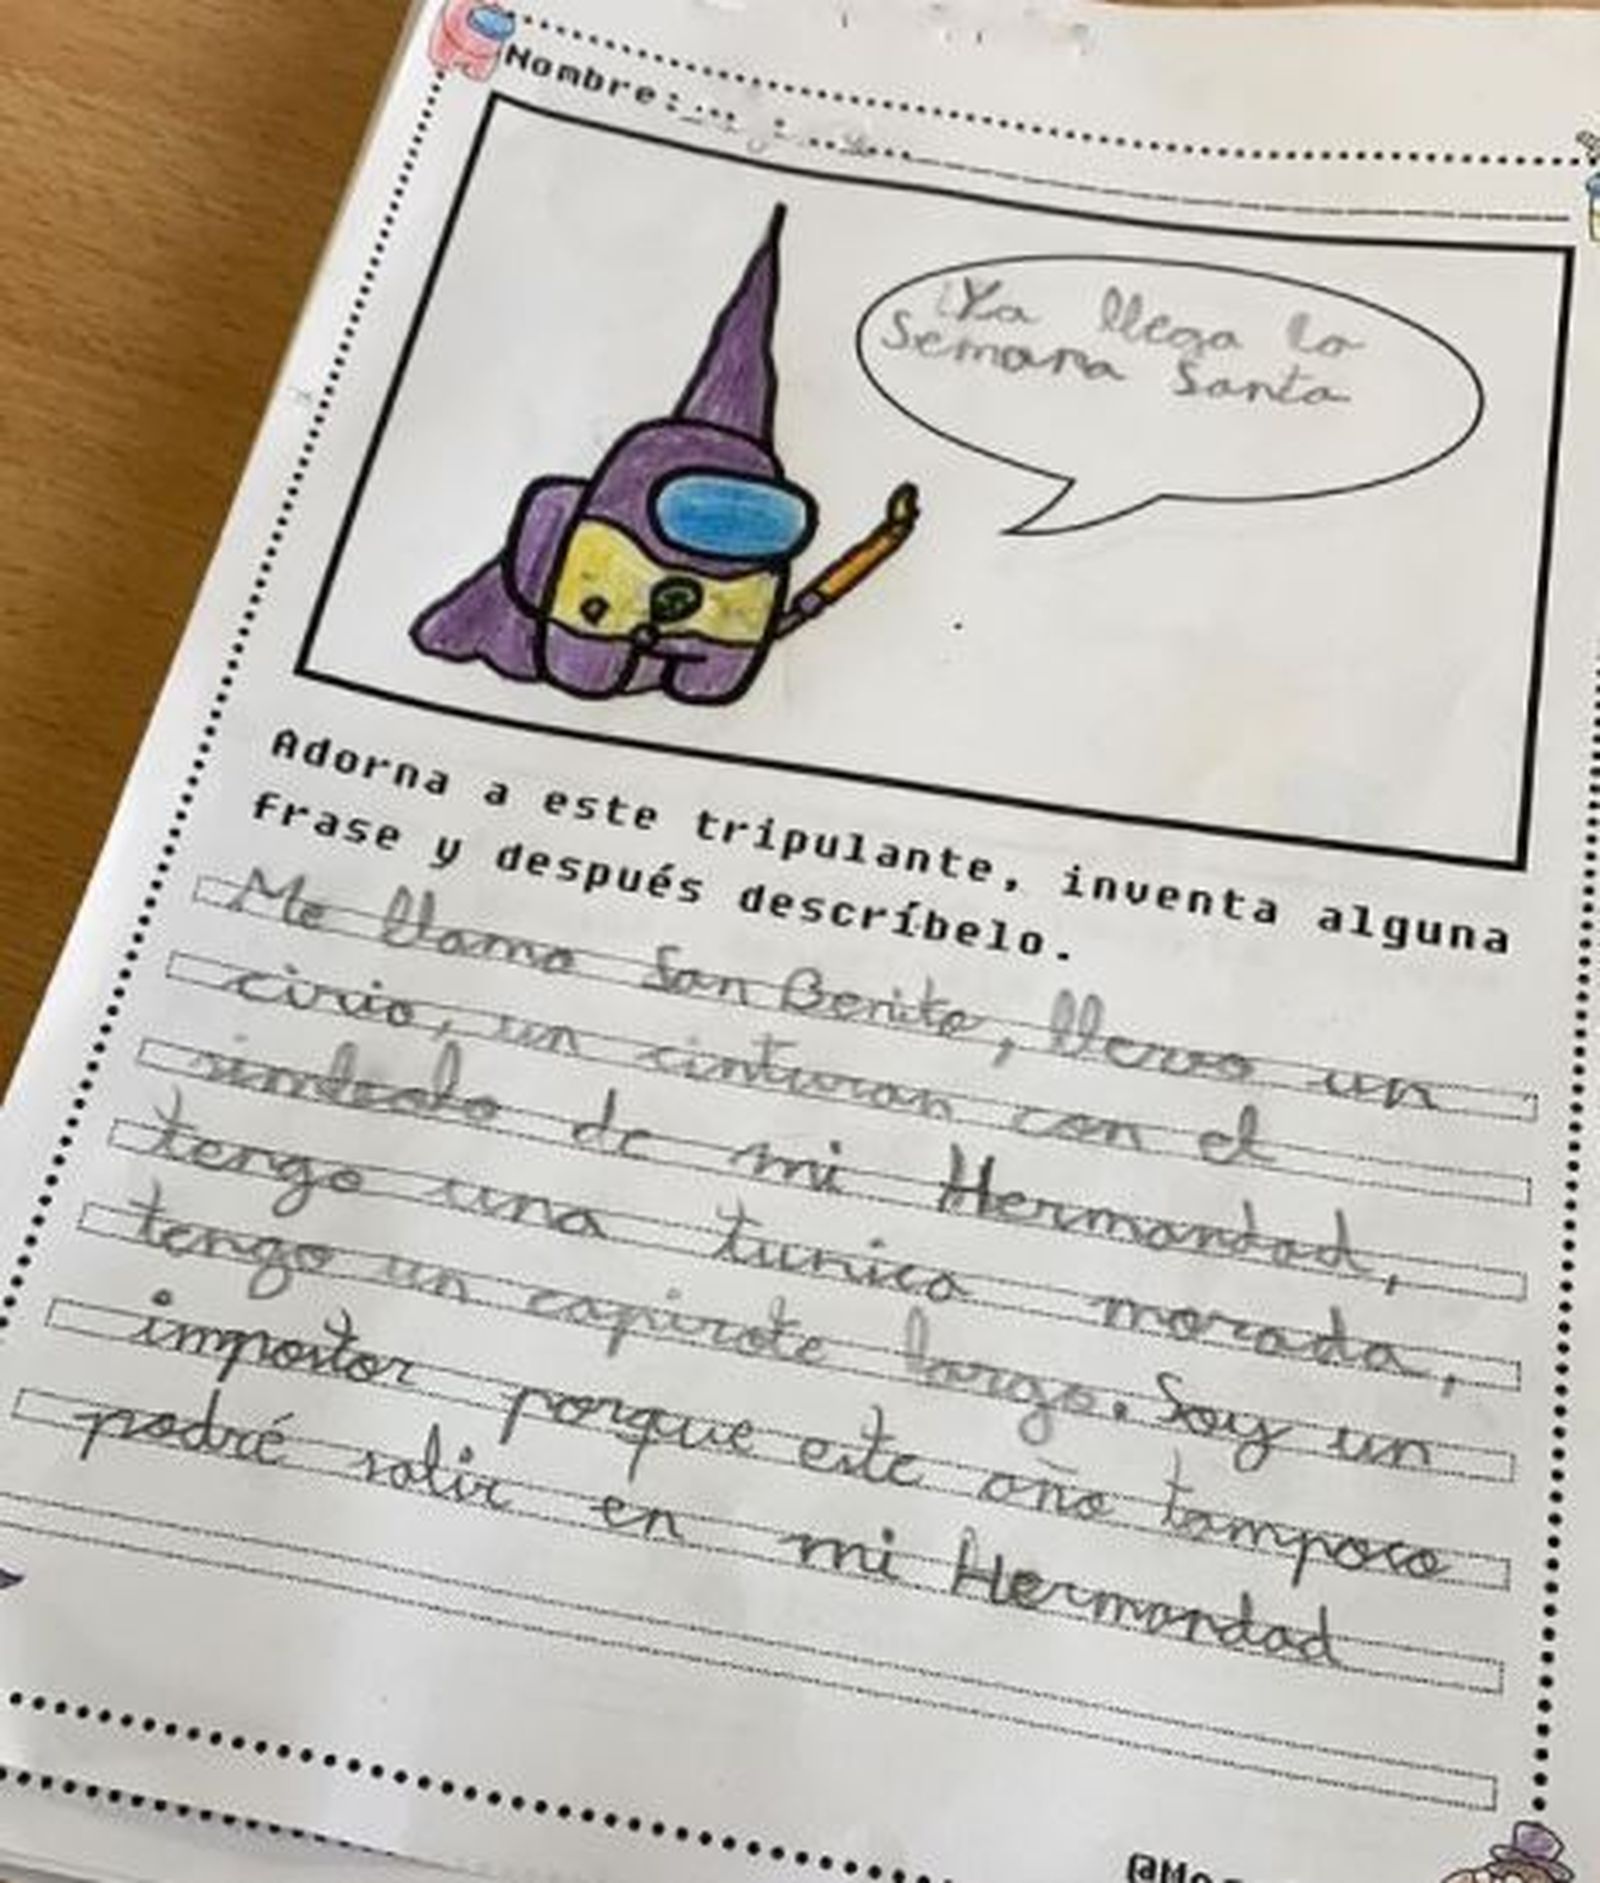 Nombre:
¡Ya llega la
Semana Santa
Adorna a este tripulante, inventa alguna
frase y después descríbelo.
Me llamo San Benito, llevo un
cirio, un cinturon con el
simbolo de mi Hermandad,
tengo una tunica morada,
tengo un capirote largo. Soy un
impostor porque este año tampoco
podré salir en mi Hermandad